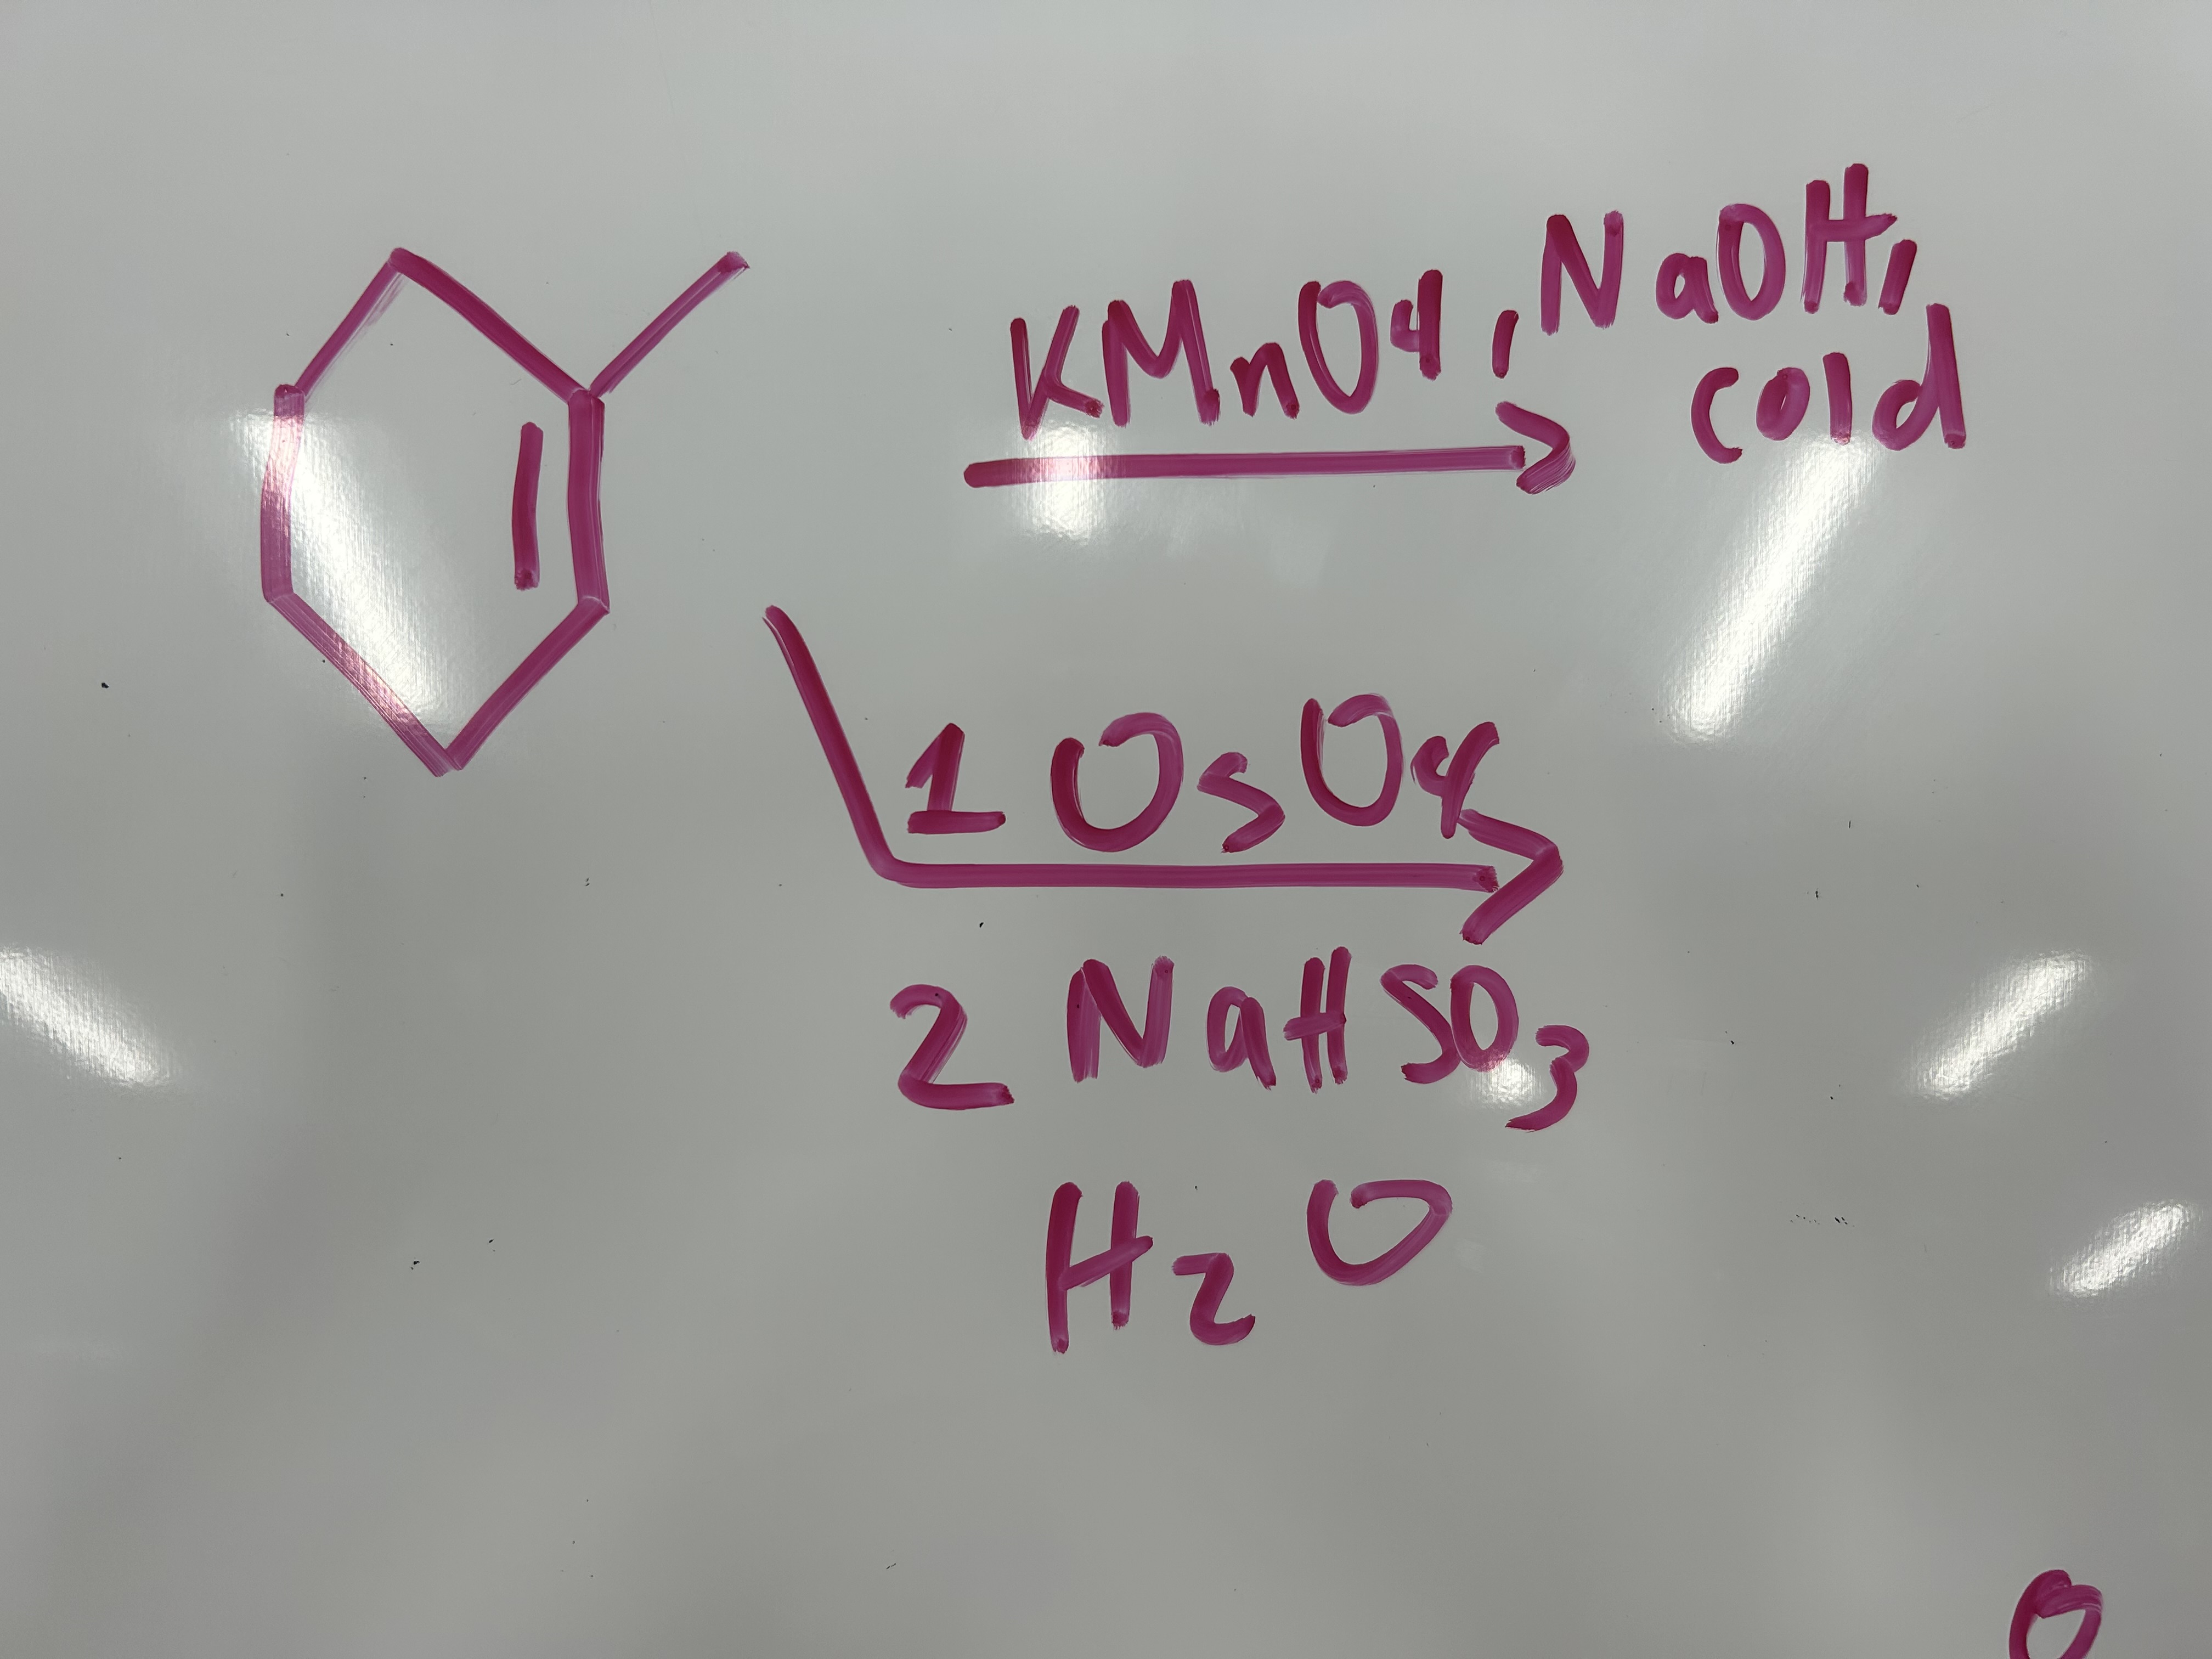 KMnO4, NaOH,
cold
1 OsO4
2 NaHSO3
H2O